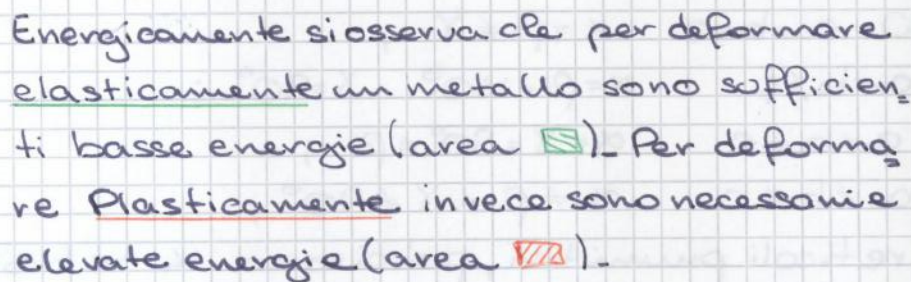 Energicamente si osserva che per deformare
elasticamente un metallo sono sufficien=
ti basse energie (area ). Per deforma=
re Plasticamente invece sono necessarie
elevate energie (area ).